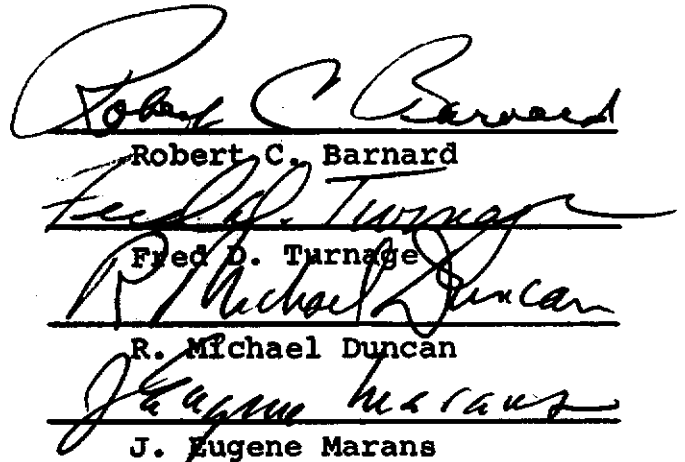 Robert C Barnard
Robert C. Barnard
Fred D. Turnage
Fred D. Turnage
R Michael Duncan
R. Michael Duncan
J Eugene Marans
J. Eugene Marans